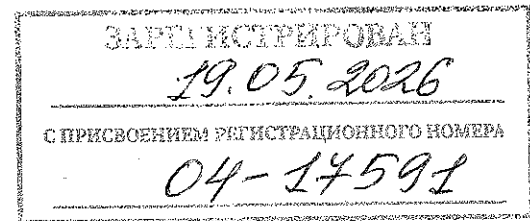 ЗАРЕГИСТРИРОВАН
19.05.2026
С ПРИСВОЕНИЕМ РЕГИСТРАЦИОННОГО НОМЕРА
04-17591